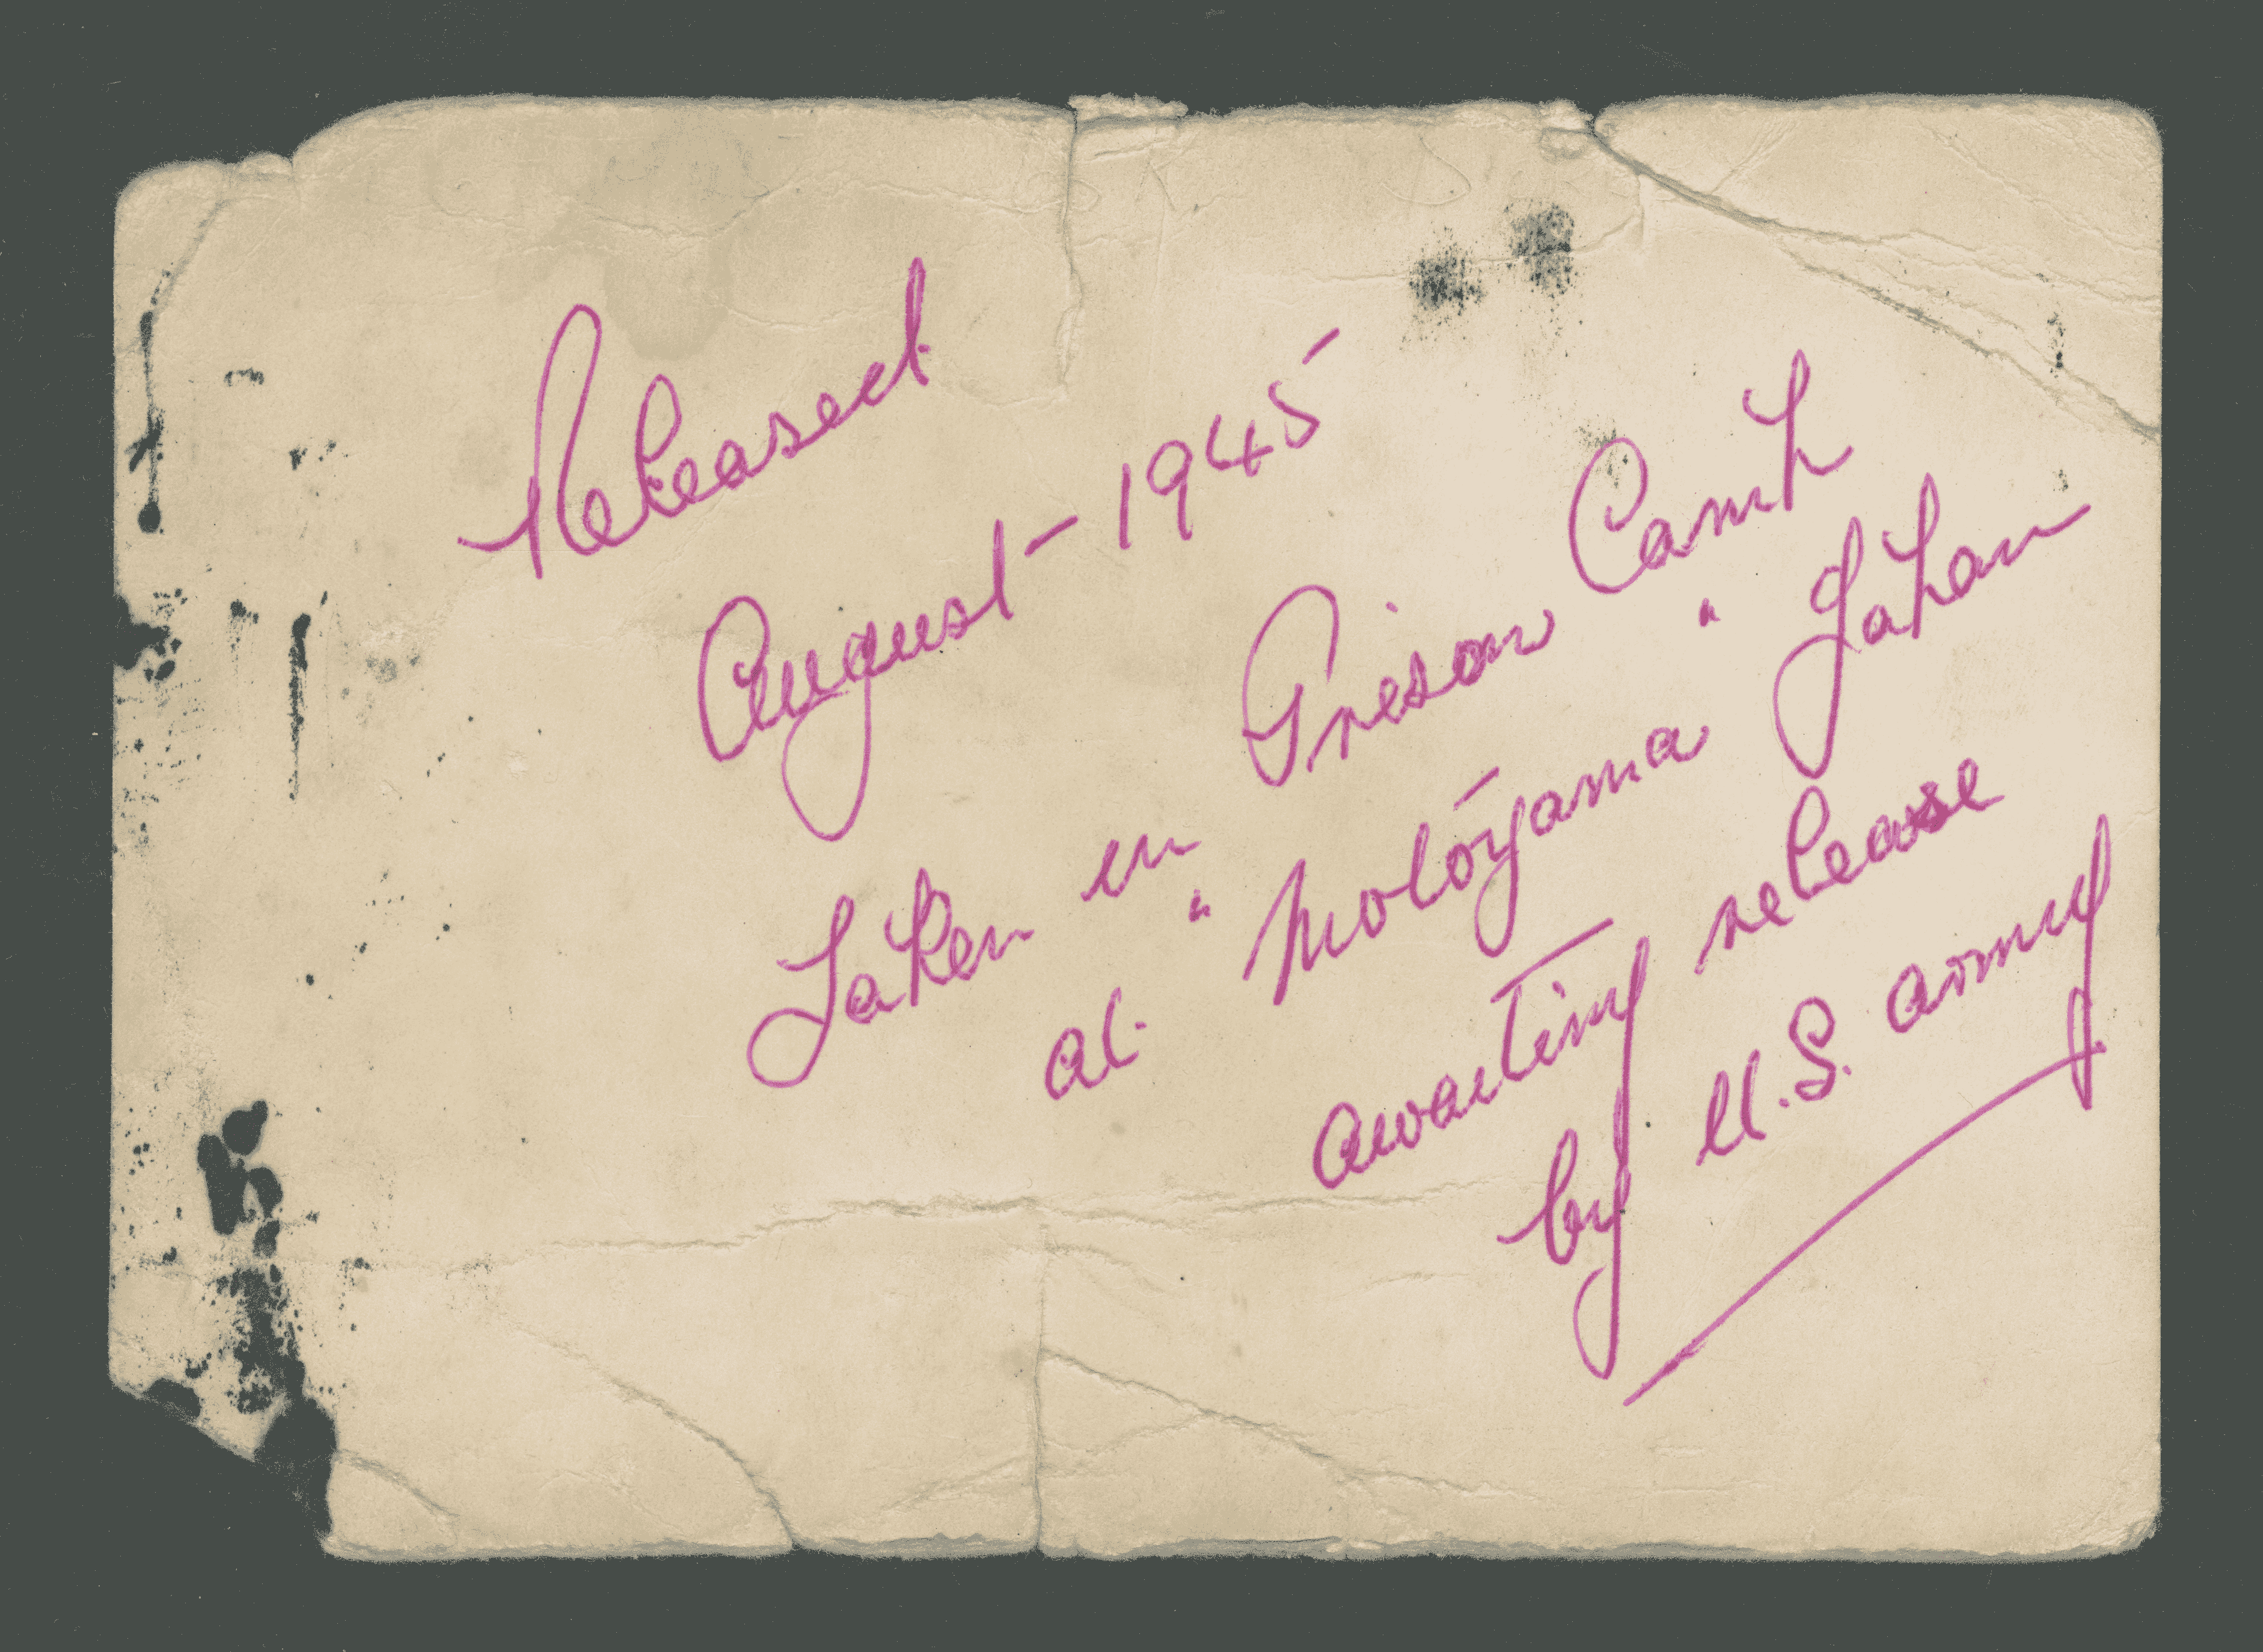 Released
August - 1945
Taken in Prison Camp
at "Motoyama" Japan
awaiting release
by U.S. army